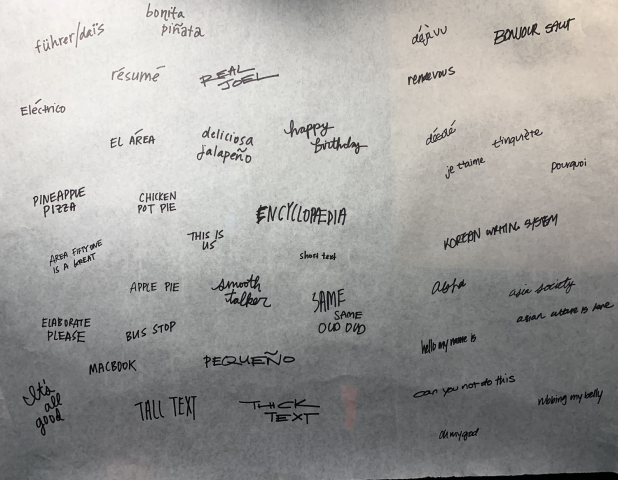 bonita
piñata
führer/daïs
déjà vu
BONJOUR SALUT
résumé
REAL
JOEL
rendevous
Eléctrico
EL ÁREA
deliciosa
jalapeño
happy
birthday
décédé
t'inquiète
je t'aime
pourquoi
PINEAPPLE
PIZZA
CHICKEN
POT PIE
ENCYCLOPÆDIA
THIS IS
US
KOREAN WRITING SYSTEM
AREA FIFTY ONE
IS A GREAT
short text
APPLE PIE
smooth
talker
SAME
SAME
OLD OLD
asia society
asian culture is
ELABORATE
PLEASE
BUS STOP
hello my name is
MACBOOK
PEQUEÑO
It's
all
good
TALL TEXT
THICK
TEXT
can you not do this
rubbing my belly
oh my god